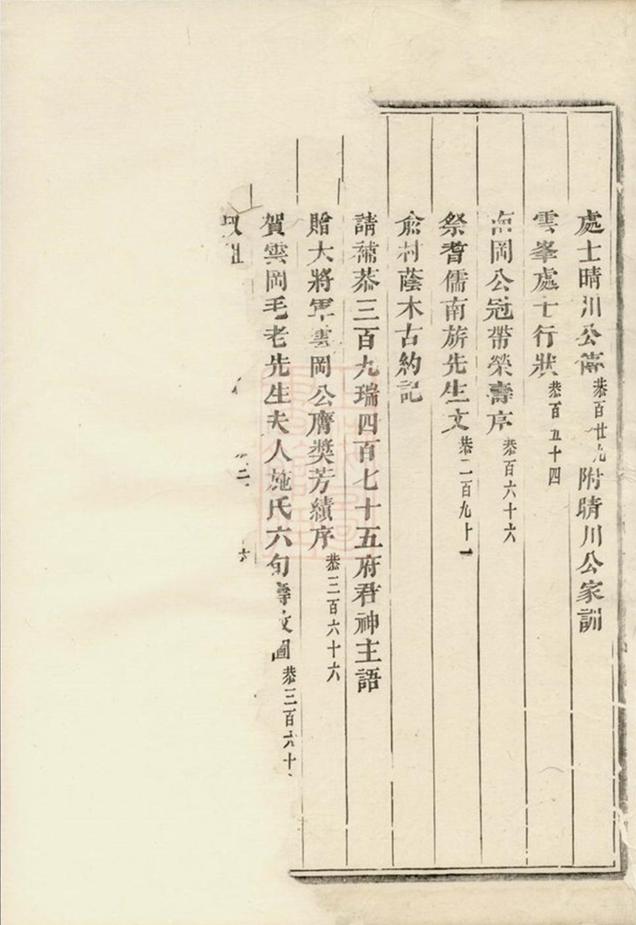 處士晴川公傳恭百廿九附晴川公家訓
雲峯處士行狀恭百五十四
南岡公冠帶榮壽序恭百六十六
祭耆儒南旂先生文恭二百九十一
俞村蔭木古約記
請補恭三百九瑞四百七十五府君神主語
贈大將軍雲岡公膺獎芳績序恭三百六十六
賀雲岡毛老先生夫人施氏六旬壽文圖恭三百六十